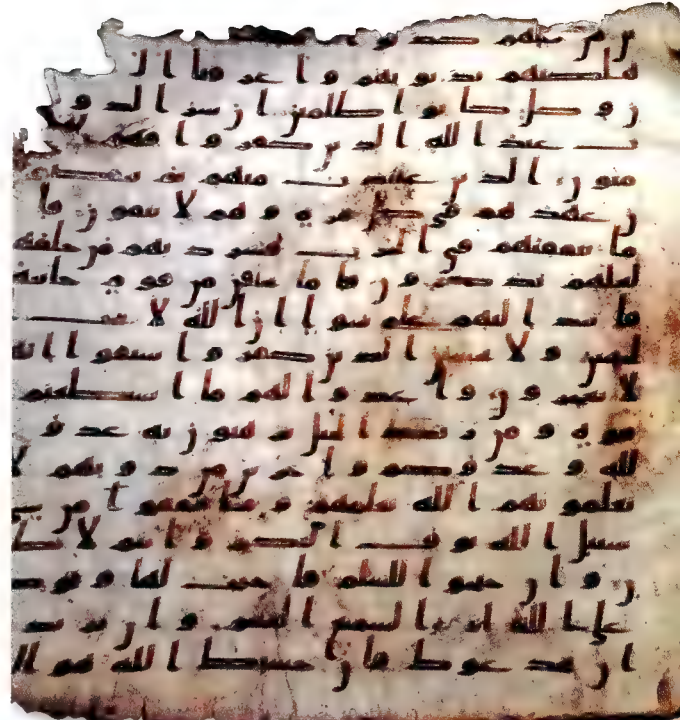 من قبلهم كذبوا
فاهلكنهم بذنوبهم واغرقنا ال
فرعون وكل كانوا ظلمين ان شر الدوا
ب عند الله الذين كفروا فهم لا
يومنون الذين عهدت منهم ثم ينقضو
ن عهدهم في كل مرة وهم لا يتقون فا
ما تثقفنهم في الحرب فشرد بهم من خلفهم
لعلهم يذكرون واما تخافن من قوم خيانة
فانبذ اليهم على سوا ان الله لا يحب
الخئنين ولا يحسبن الذين كفروا سبقوا انهم
لا يعجزون واعدوا لهم ما استطعتم
من قوة ومن رباط الخيل ترهبون به عدو ا
لله وعدوكم واخرين من دونهم لا
تعلمونهم الله يعلمهم وما تنفقوا من شي في
سبيل الله يوف اليكم وانتم لا تظلمو
ن وان جنحوا للسلم فاجنح لها وتوكل
على الله انه هو السميع العليم وان يريدوا
ان يخدعوك فان حسبك الله هو ال